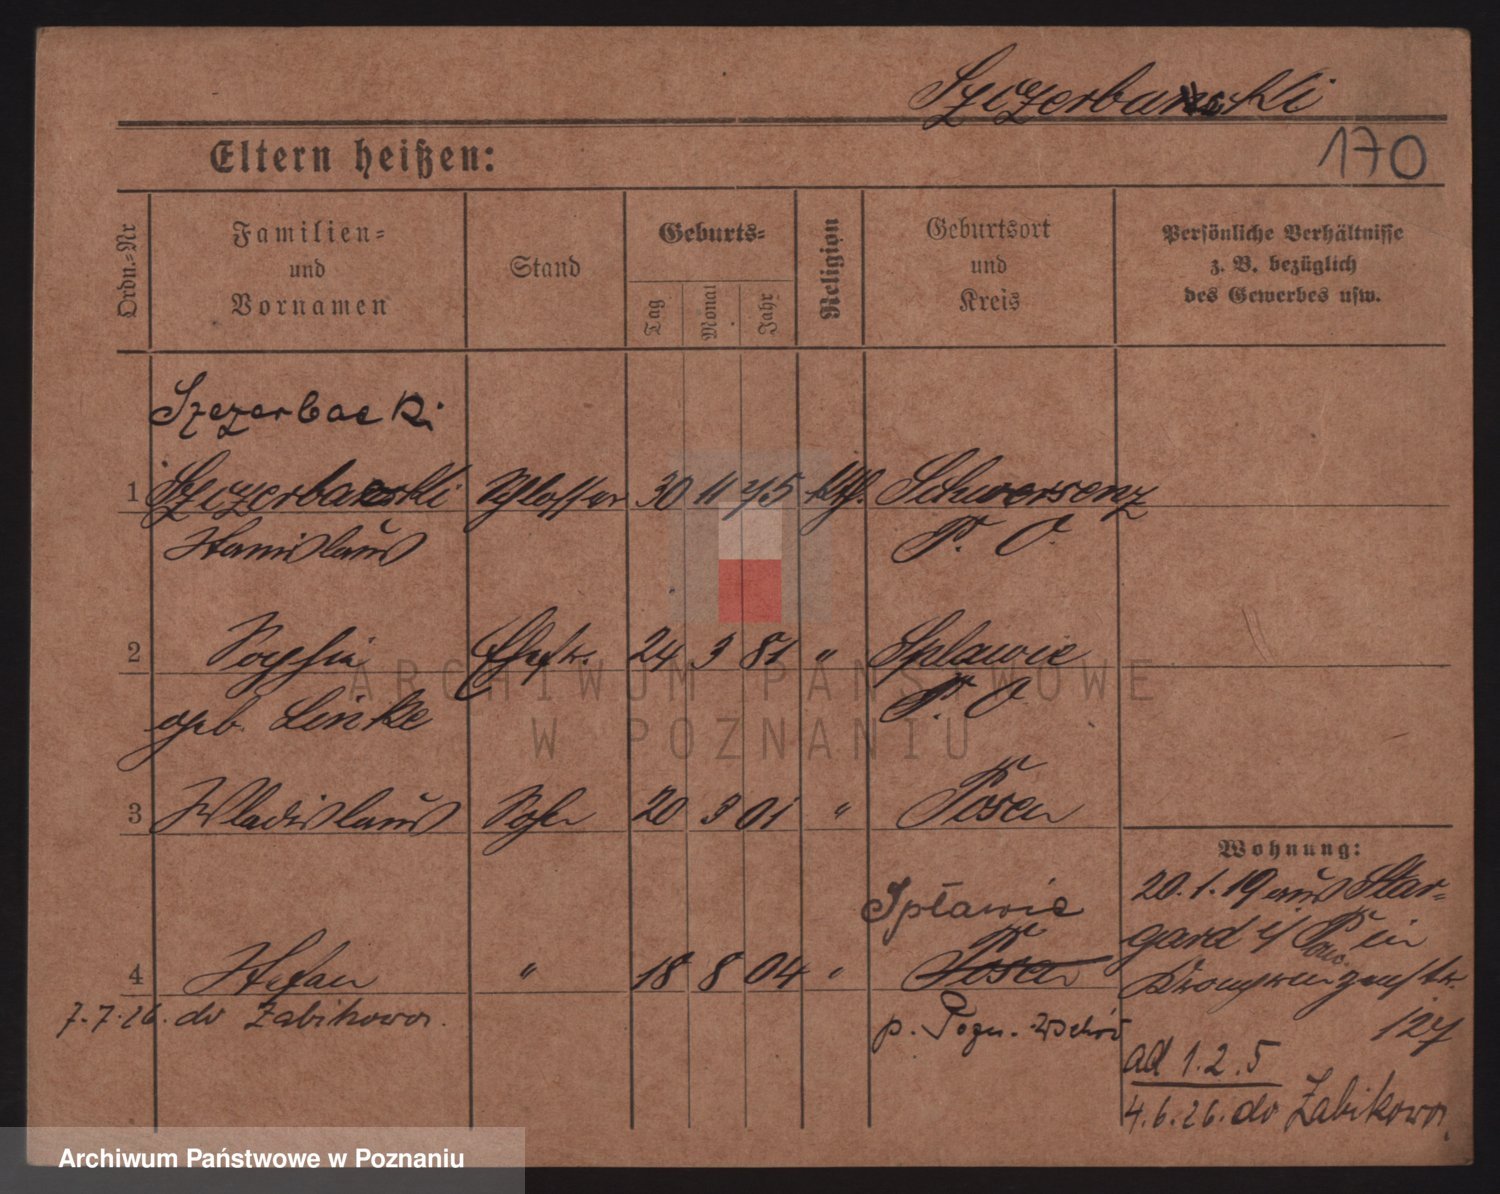 Szczerbanski
Eltern heißen:
170
Ordn.=Nr
Familien=
und
Vornamen
Stand
Geburts=
Tag
Monat
Jahr
Religion
Geburtsort
und
Kreis
Persönliche Verhältnisse
z. B. bezüglich
des Gewerbes usw.
Szczerbacki
1 Szczerbanski Schlosser 30 11 75 kth. Schwersenz
Stanislaus P. O.
2 Sophia Ehefr. 24 3 81 " Splawie
geb. Linke P. O
3 Wladislaus Sohn 20 3 01 " Posen
Wohnung:
20.1.19 aus Star=
gard i/ Pom. in
Kronprinzenstr.
127
Spławie
4 Stefan " 18 8 04 " Posen
7.7.26. do Żabikowa.
p. Pozn. Wschód
ad 1.2.5
4.6.26. do Żabikowa.
ARCHIWUM PAŃSTWOWE
W POZNANIU
Archiwum Państwowe w Poznaniu